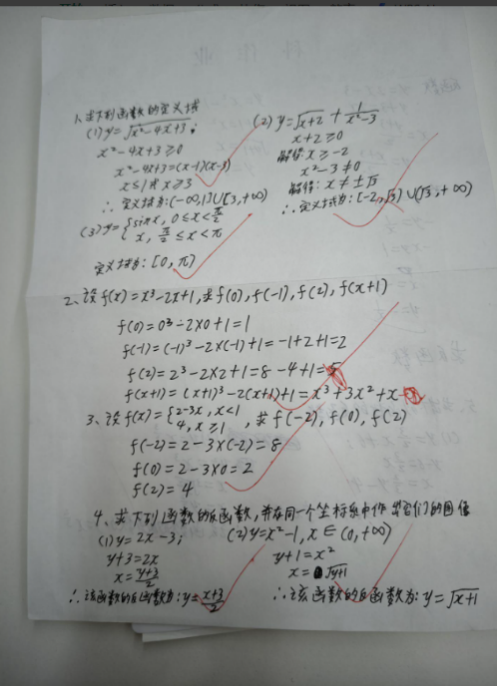 1、求下列函数的定义域
(1) y=√(x²-4x+3);
x²-4x+3≥0
x²-4x+3=(x-1)(x-3)
x≤1或x≥3
∴定义域为:(-∞,1]∪[3,+∞)
(2) y=√(x+2) + 1/(x²-3)
x+2≥0
解得:x≥-2
x²-3≠0
解得:x≠±√3
∴定义域为:[-2,√3)∪(√3,+∞)
(3) y={sinx, 0≤x<π/2
x, π/2≤x<π
定义域为:[0,π)
2、设f(x)=x³-2x+1,求f(0),f(-1),f(2),f(x+1)
f(0)=0³-2×0+1=1
f(-1)=(-1)³-2×(-1)+1=-1+2+1=2
f(2)=2³-2×2+1=8-4+1=5
f(x+1)=(x+1)³-2(x+1)+1=x³+3x²+x
3、设f(x)={2-3x, x<1
4, x≥1 ,求f(-2),f(0),f(2)
f(-2)=2-3×(-2)=8
f(0)=2-3×0=2
f(2)=4
4、求下列函数的反函数,并在同一个坐标系中作出它们的图像
(1) y=2x-3;
y+3=2x
x=(y+3)/2
∴该函数的反函数为:y=(x+3)/2
(2) y=x²-1, x∈(0,+∞)
y+1=x²
x=√(y+1)
∴该函数的反函数为:y=√(x+1)